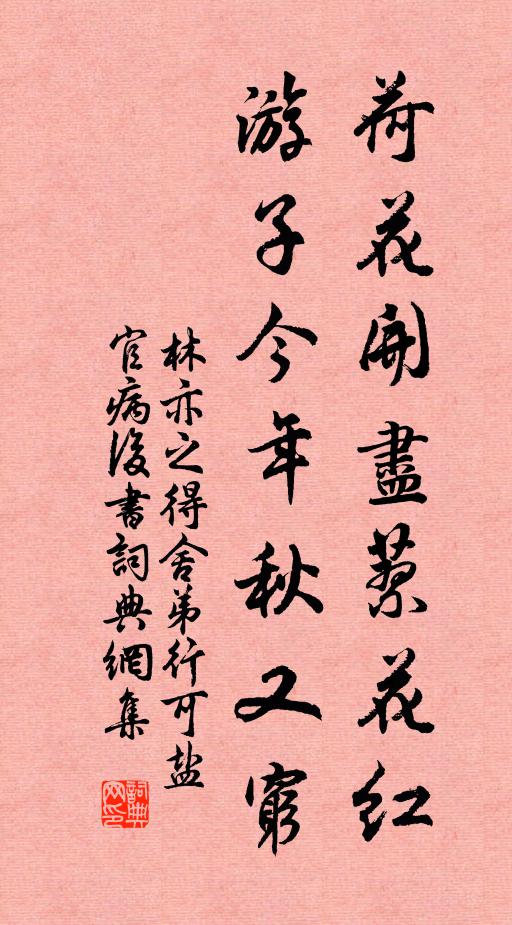 荷花開盡蔡花紅
游子今年秋又窮
林亦之得舍弟行可盐
官病後書詞典網集
詞典
网印